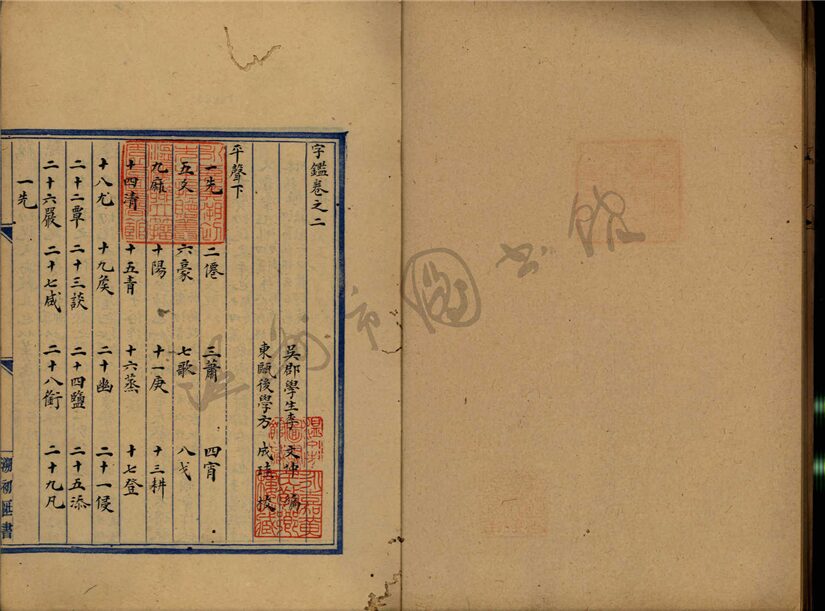 字鑑卷之二
吳郡學生李文仲編
東甌後學方成珪校
平聲下
一先 二僊 三蕭 四宵
五爻 六豪 七歌 八戈
九麻 十陽 十一庚 十三耕
十四清 十五青 十六蒸 十七登
十八尤 十九矦 二十幽 二十一侵
二十二覃 二十三談 二十四鹽 二十五添
二十六嚴 二十七咸 二十八銜 二十九凡
一先
溯初匯書
温州市图书馆